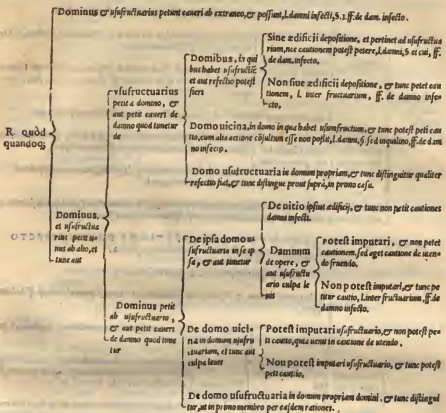 Dominus & usufructuarius petunt caueri ab extraneo, & possunt, l. damni infecti, §. 1. ff. de dam. infecto.
R. quòd
quandoq;
Dominus,
et usufructua
rius petit u-
nus ab alto, et
tunc aut
vsufructuarius
petit a domino, &
aut petit caueri de
damno quod timetur
de
Domibus, in qui
bus habet usufructũ:
et aut refectio potest
fieri
Sine ædificij depositione, et pertinet ad usufructua
rium, nec cautionem potest petere, l. damni, §. et cui, ff.
de dam. infecto.
Non sine ædificij depositione, & tunc petet cau
tionem, l. inter fructuarium, ff. de damno infe-
cto,
Domo uicina, in domo in qua habet usumfructum, & tunc potest peti cau
tio, cum alia actione cõsultum esse non possit, l. damni, §. sed inquilino, ff. de dam
no infecto.
Domo usufructuaria in domum propriam, & tunc distinguitur qualiter
refectio fiat, & tunc distingue prout suprà, in primo casu.
Dominus petit
ab usufructuario,
& aut petit caueri
de damno quod time
tur
De ipsa domo u
sufructuaria in se ip
sa, & aut timetur
De uitio ipsius ædificij, & tunc non petit cautiones
damni infecti.
Damnum
de opere, &
aut usufructu
ario culpa le
uis
Potest imputari, & non petet
cautionem, sed aget cautione de uten-
do fruendo.
Non potest imputari, & tunc pe
titur cautio, l. inter fructuarium, ff. de
damno infecto.
De domo uici
na in domum usufru
ctuariam, et tunc aut
culpa leuis
Potest imputari usufructuario, & non potest pe-
ti cautio, quia uenit in cautione de utendo.
Non potest imputari usufructuario, & tunc potest
peti cautio,
De domo usufructuaria in domum propriam domini, & tunc distingui
tur, ut in primo membro per easdem rationes.